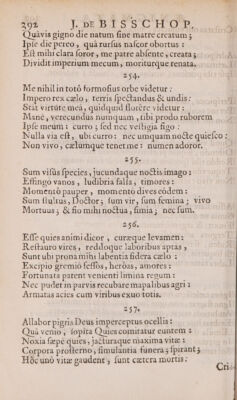 292 J. DE BISSCHOP.
Quâvis gigno die natum sine matre creatum;
Ipse die pereo, quâ rursus nascor obortus:
Est mihi clara soror, me patre absente, creata;
Dividit imperium mecum, moriturque renata.
254.
Me nihil in totô formosius orbe videtur:
Impero rex cælo, terris spectandus & undis:
Stat virtute meâ, quidquid florêre videtur:
Mane, verecundus nunquam, tibi prodo ruborem
Ipse meum: curro; sed nec vestigia figo:
Nulla via est, ubi curro: nec umquam nocte quiesco:
Non vivo, cælumque tenet me: numen adoror.
255.
Sum visûs species, jucundaque noctis imago:
Effingo vanos, ludibria falsa, timores:
Momentô pauper, momentô dives eôdem:
Sum stultus, Doctor; sum vir, sum femina; vivo
Mortuus; & fio mihi noctua, simia; nec sum.
256.
Esse quies animi dicor, curæque levamen:
Restauro vires, reddoque laboribus aptas,
Sunt ubi prona mihi labentia sidera cælo:
Excipio gremiô fessos, herôas, amores:
Fortunata patent venienti limina regum:
Nec pudet in parvis recubare mapalibus agri:
Armatas acies cum viribus exuo totis.
257.
Allabor pigris Deus imperceptus ocellis:
Quâ venio, sopita Quies comitatur euntem:
Noxia sæpe quies, jacturaque maxima vitæ:
Corpora prosterno, simulantia funera; spirant;
Hôc unô vitæ gaudent; sunt cætera mortis:
Cri-